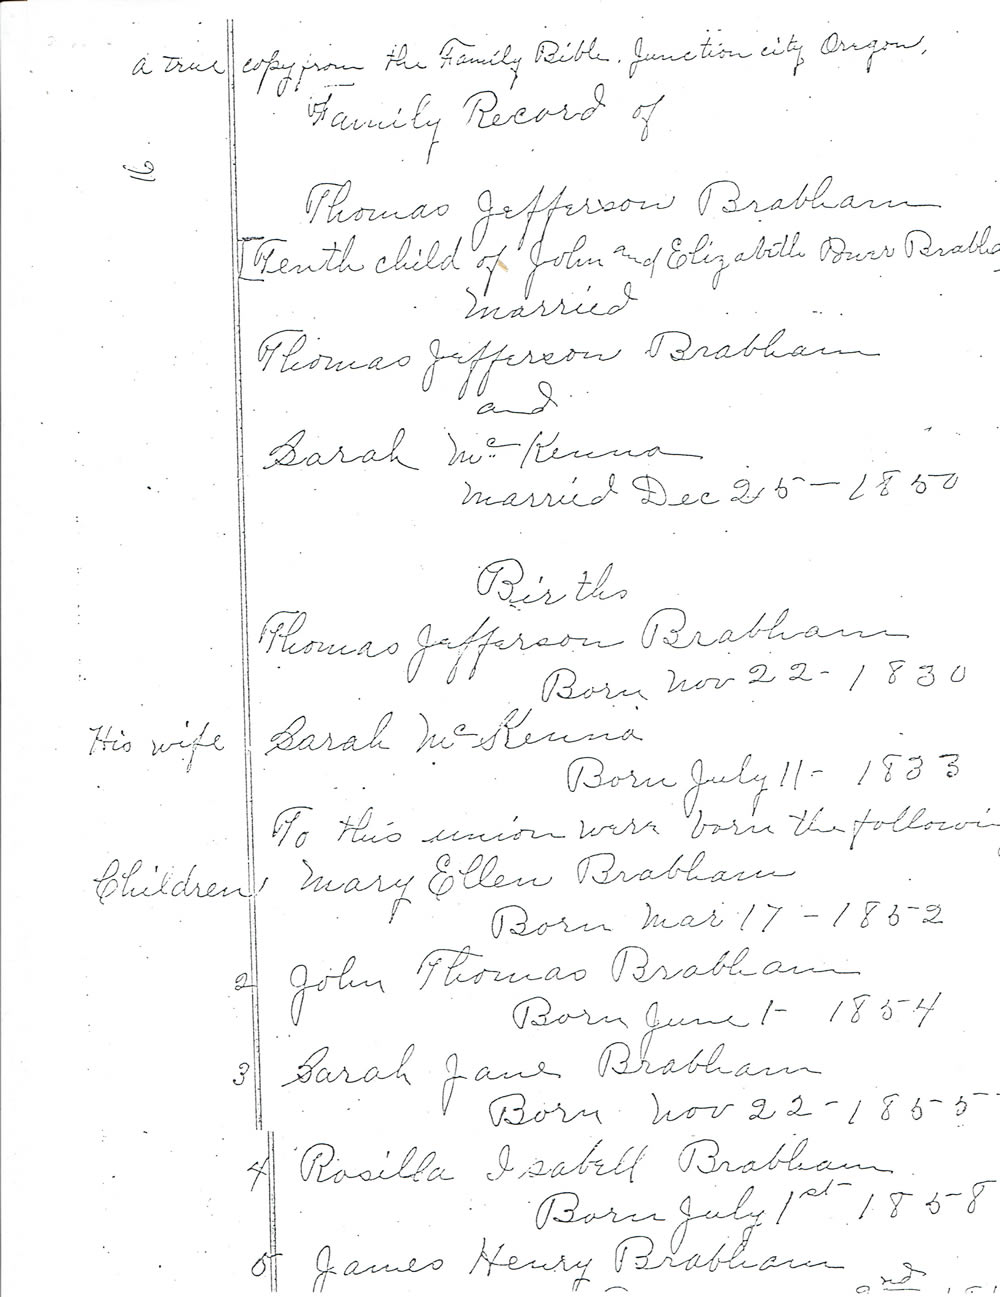 A true copy from the Family Bible. Junction city Oregon.
Family Record of
16
Thomas Jefferson Brabham
[Tenth child of John and Elizabeth Burr Brabha
Married
Thomas Jefferson Brabham
and
Sarah McKenna
Married Dec 25 - 1850
Births
Thomas Jefferson Brabham
Born Nov 22 - 1830
His wife Sarah McKenna
Born July 11 - 1833
To this union were born the followin
Children, Mary Ellen Brabham
Born Mar 17 - 1852
2 John Thomas Brabham
Born June 1 - 1854
3 Sarah Jane Brabham
Born Nov 22 - 1855
4 Rosilla Isabell Brabham
Born July 1st 1858
5 James Henry Brabham
2nd